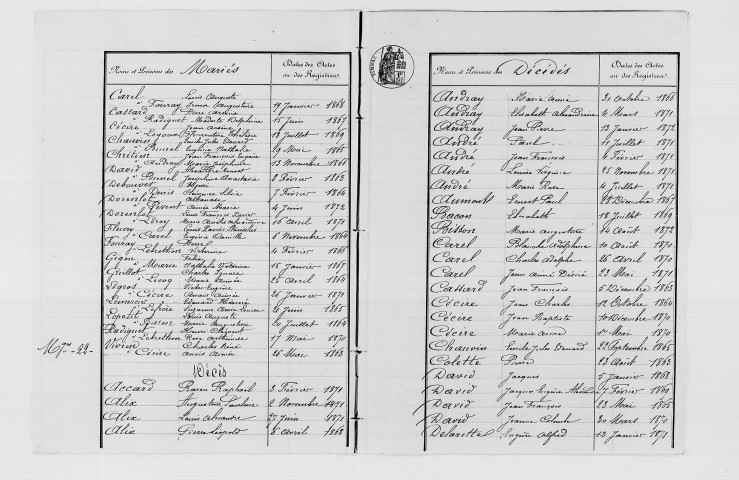 Noms et Prénoms des Mariés
Dates des Actes
ou des Registres
Carel Louis Auguste
à Fouray Irma Augustine 19 Janvier 1868
Castard Pierre Arsène
à Radiguet Modeste Delphine 15 Juin 1867
Cécire Jean Arsène
à Legoupil Florentine 18 Juillet 1869
Chauvin Emile Jules Edouard
à Brunel Eugénie Nathalie 29 Mai 1865
Chrétien Jean François Eugène
à Andray Marie Joséphine 13 Novembre 1866
David
à Brunel Joséphine Anastasie 8 Février 1863
à Denis Clémence Silvie 7 Février 1864
Dorenlot
Aimée Marie 4 Juin 1872
Dorenlot Louis François
à Leroy 16 Avril 1871
Fleury Louis Xavier Stanislas
à Carel Eugénie Camille 6 Novembre 1864
Fouray
à Lebrethon Victorine 4 Février 1865
Gigon Félix
à Marie Nathalie Victorine 15 Janvier 1867
Guillot Charles Ignace
à Lecoq Marie Aimée 25 Avril 1864
Legros Victor Eugène
à Cécire Anaïs Aimée 26 Janvier 1870
Lemercier Edouard
à Suzanne Anne Louise 21 Juin 1865
Lepetit Louis Auguste
à Poisson Marie Augustine 20 Juillet 1864
Radiguet
à Lebrethon Rose 17 Mai 1870
Vivien Charles
à Cécire Anaïs Aimée 26 Mai 1863
Mqu -22-
Décès
Accard Raven Raphaël 3 Février 1871
Alix Augustine Pauline 2 Novembre 1871
Alix Louis Alexandre 27 Juin 1871
Alix Pierre Léopold 5 Avril 1868
Noms et Prénoms des Décédés
Dates des Actes
ou des Registres
Andray Marie Aimée 31 Octobre 1866
Andray Elisabeth Alexandrine 4 Mars 1871
Andray Jean Pierre 13 Janvier 1872
André Paul 11 Juillet 1871
André Jean François 6 Février 1871
André Louise Virginie 25 Novembre 1871
André Marie Rose 4 Juillet 1871
Aumont Ernest Paul 28 Décembre 1867
Bacon Elisabeth 18 Juillet 1869
Poisson Marie Augustine 14 Août 1872
Carel Blanche Joséphine 10 Août 1870
Carel Charles Adolphe 26 Avril 1870
Carel Jean Aimé Désiré 23 Mai 1871
Castard Jean François 5 Décembre 1863
Cécire Jean Charles 12 Octobre 1864
Cécire Jean Baptiste 10 Décembre 1870
Cécire Marie Anne 1er Mai 1870
Chauvin Emile Jules Edouard 22 Septembre 1865
Colette Pierre 23 Août 1863
David Jacques 5 Janvier 1868
David Jacques Eugène 7 Février 1869
David Jean François 23 Mai 1865
David Jeanne Colombe 30 Mars 1870
Delarotte Eugène Alfred 12 Janvier 1871